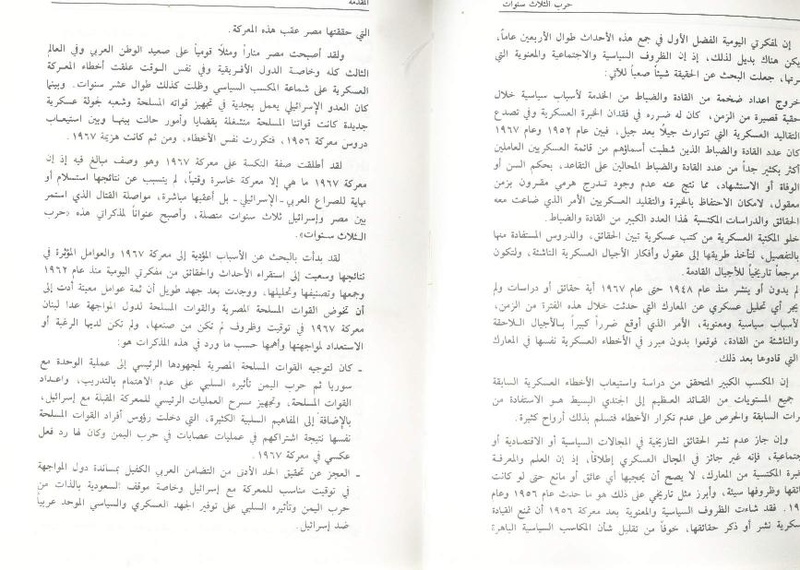 حرب الثلاث سنوات
إن لمفكرتي اليومية الفضل الأول في جمع هذه الأحداث طوال الأربعين عاماً،
يكن هناك بديل لذلك، إذ إن الظروف السياسية والاجتماعية والمعنوية التي
جعلت البحث عن الحقيقة شيئاً صعباً للآتي:
خروج اعداد ضخمة من القادة والضباط من الخدمة لأسباب سياسية خلال
حقبة قصيرة من الزمن، كان له ضرره في فقدان الخبرة العسكرية وفي تصدع
التقاليد العسكرية التي تتوارث جيلًا بعد جيل، فبين عام ١٩٥٢ وعام ١٩٦٧
كان عدد القادة والضباط الذين شطبت أسماؤهم من قائمة العسكريين العاملين
أكثر بكثير جداً من عدد القادة والضباط المحالين على التقاعد، بحكم السن أو
الوفاة أو الاستشهاد، مما نتج عنه عدم وجود تدرج هرمي مقرون بزمن
معقول، لامكان الاحتفاظ بالخبرة والتقليد العسكريين الأمر الذي ضاعت معه
الحقائق والدراسات المكتسبة لهذا العدد الكبير من القادة والضباط.
خلو المكتبة العسكرية من كتب عسكرية تبين الحقائق، والدروس المستفادة منها
بالتفصيل، لتأخذ طريقها إلى عقول وأفكار الأجيال العسكرية الناشئة، ولتكون
مرجعاً تاريخياً للأجيال القادمة.
لم يدون أو ينشر منذ عام ١٩٤٨ حتى عام ١٩٦٧ أية حقائق أو دراسات ولم
يجر أي تحليل عسكري عن المعارك التي حدثت خلال هذه الفترة من الزمن،
لأسباب سياسية ومعنوية، الأمر الذي أوقع ضرراً كبيراً بالأجيال اللاحقة
والناشئة من القادة، فوقعوا بدون مبرر في الأخطاء العسكرية نفسها في المعارك
التي قادوها بعد ذلك.
إن المكسب الكبير المتحقق من دراسة واستيعاب الأخطاء العسكرية السابقة
جميع المستويات من القائد العظيم إلى الجندي البسيط هو الاستفادة من
السابقة والحرص على عدم تكرار الأخطاء فتسلم بذلك أرواح كثيرة.
وإن جاز عدم نشر الحقائق التاريخية في المجالات السياسية أو الاقتصادية أو
فإنه غير جائز في المجال العسكري إطلاقاً، إذ إن العلم والمعرفة
المكتسبة من المعارك، لا يصح أن يحجبها أي عائق أو مانع حتى لو كانت
وظروفها سيئة، وأبرز مثل تاريخي على ذلك هو ما حدث عام ١٩٥٦ وعام
فقد شاءت الظروف السياسية والمعنوية بعد معركة ١٩٥٦ أن تمنع القيادة
نشر أو ذكر حقائقها، خوفاً من تقليل شأن المكاسب السياسية الباهرة
المقدمة
التي حققتها مصر عقب هذه المعركة.
ولقد أصبحت مصر مناراً ومثلًا قومياً على صعيد الوطن العربي وفي العالم
الثالث كله وخاصة الدول الأفريقية وفي نفس الوقت علقت أخطاء المعركة
العسكرية على شماعة المكسب السياسي وظلت كذلك طوال عشر سنوات. وبينما
كان العدو الإسرائيلي يعمل بجدية في تجهيز قواته المسلحة وشعبه لجولة عسكرية
جديدة كانت قواتنا المسلحة منشغلة بقضايا وأمور حالت بينها وبين استيعاب
دروس معركة ١٩٥٦، فتكررت نفس الأخطاء، ومن ثم كانت هزيمة ١٩٦٧.
لقد أطلقت صفة النكسة على معركة ١٩٦٧ وهو وصف مبالغ فيه إذ إن
معركة ١٩٦٧ ما هي إلا معركة خاسرة وقتياً، لم يتسبب عن نتائجها استسلام أو
نهاية للصراع العربي - الإسرائيلي - بل أعقبها مباشرة، مواصلة القتال الذي استمر
بين مصر وإسرائيل ثلاث سنوات متصلة، وأصبح عنواناً لمذكراتي هذه «حرب
الـثلاث سنوات».
لقد بدأت بالبحث عن الأسباب المؤدية إلى معركة ١٩٦٧ والعوامل المؤثرة في
نتائجها وسعيت إلى استقراء الأحداث والحقائق من مفكرتي اليومية منذ عام ١٩٦٢
وجمعها وتصنيفها وتحليلها، ووجدت بعد جهد طويل أن ثمة عوامل معينة أدت إلى
أن تخوض القوات المسلحة المصرية والقوات المسلحة لدول المواجهة عدا لبنان
معركة ١٩٦٧ في توقيت وظروف لم تكن من صنعها، ولم تكن لديها الرغبة أو
الاستعداد لمواجهتها وأهمها حسب ما ورد في هذه المذكرات هو:
ـ كان لتوجيه القوات المسلحة المصرية لمجهودها الرئيسي إلى عملية الوحدة مع
سوريا ثم حرب اليمن تأثيره السلبي على عدم الاهتمام بالتدريب، واعداد
القوات المسلحة، وتجهيز مسرح العمليات الرئيسي للمعركة المقبلة مع إسرائيل،
بالإضافة إلى المفاهيم السلبية الكثيرة، التي دخلت رؤوس أفراد القوات المسلحة
نفسها نتيجة اشتراكهم في عمليات عصابات في حرب اليمن وكان لها رد فعل
عكسي في معركة ١٩٦٧.
ـ العجز عن تحقيق الحد الأدنى من التضامن العربي الكفيل بمساندة دول المواجهة
في توقيت مناسب للمعركة مع إسرائيل وخاصة موقف السعودية بالذات من
حرب اليمن وتأثيره السلبي على توفير الجهد العسكري والسياسي الموحد عربياً
ضد إسرائيل.